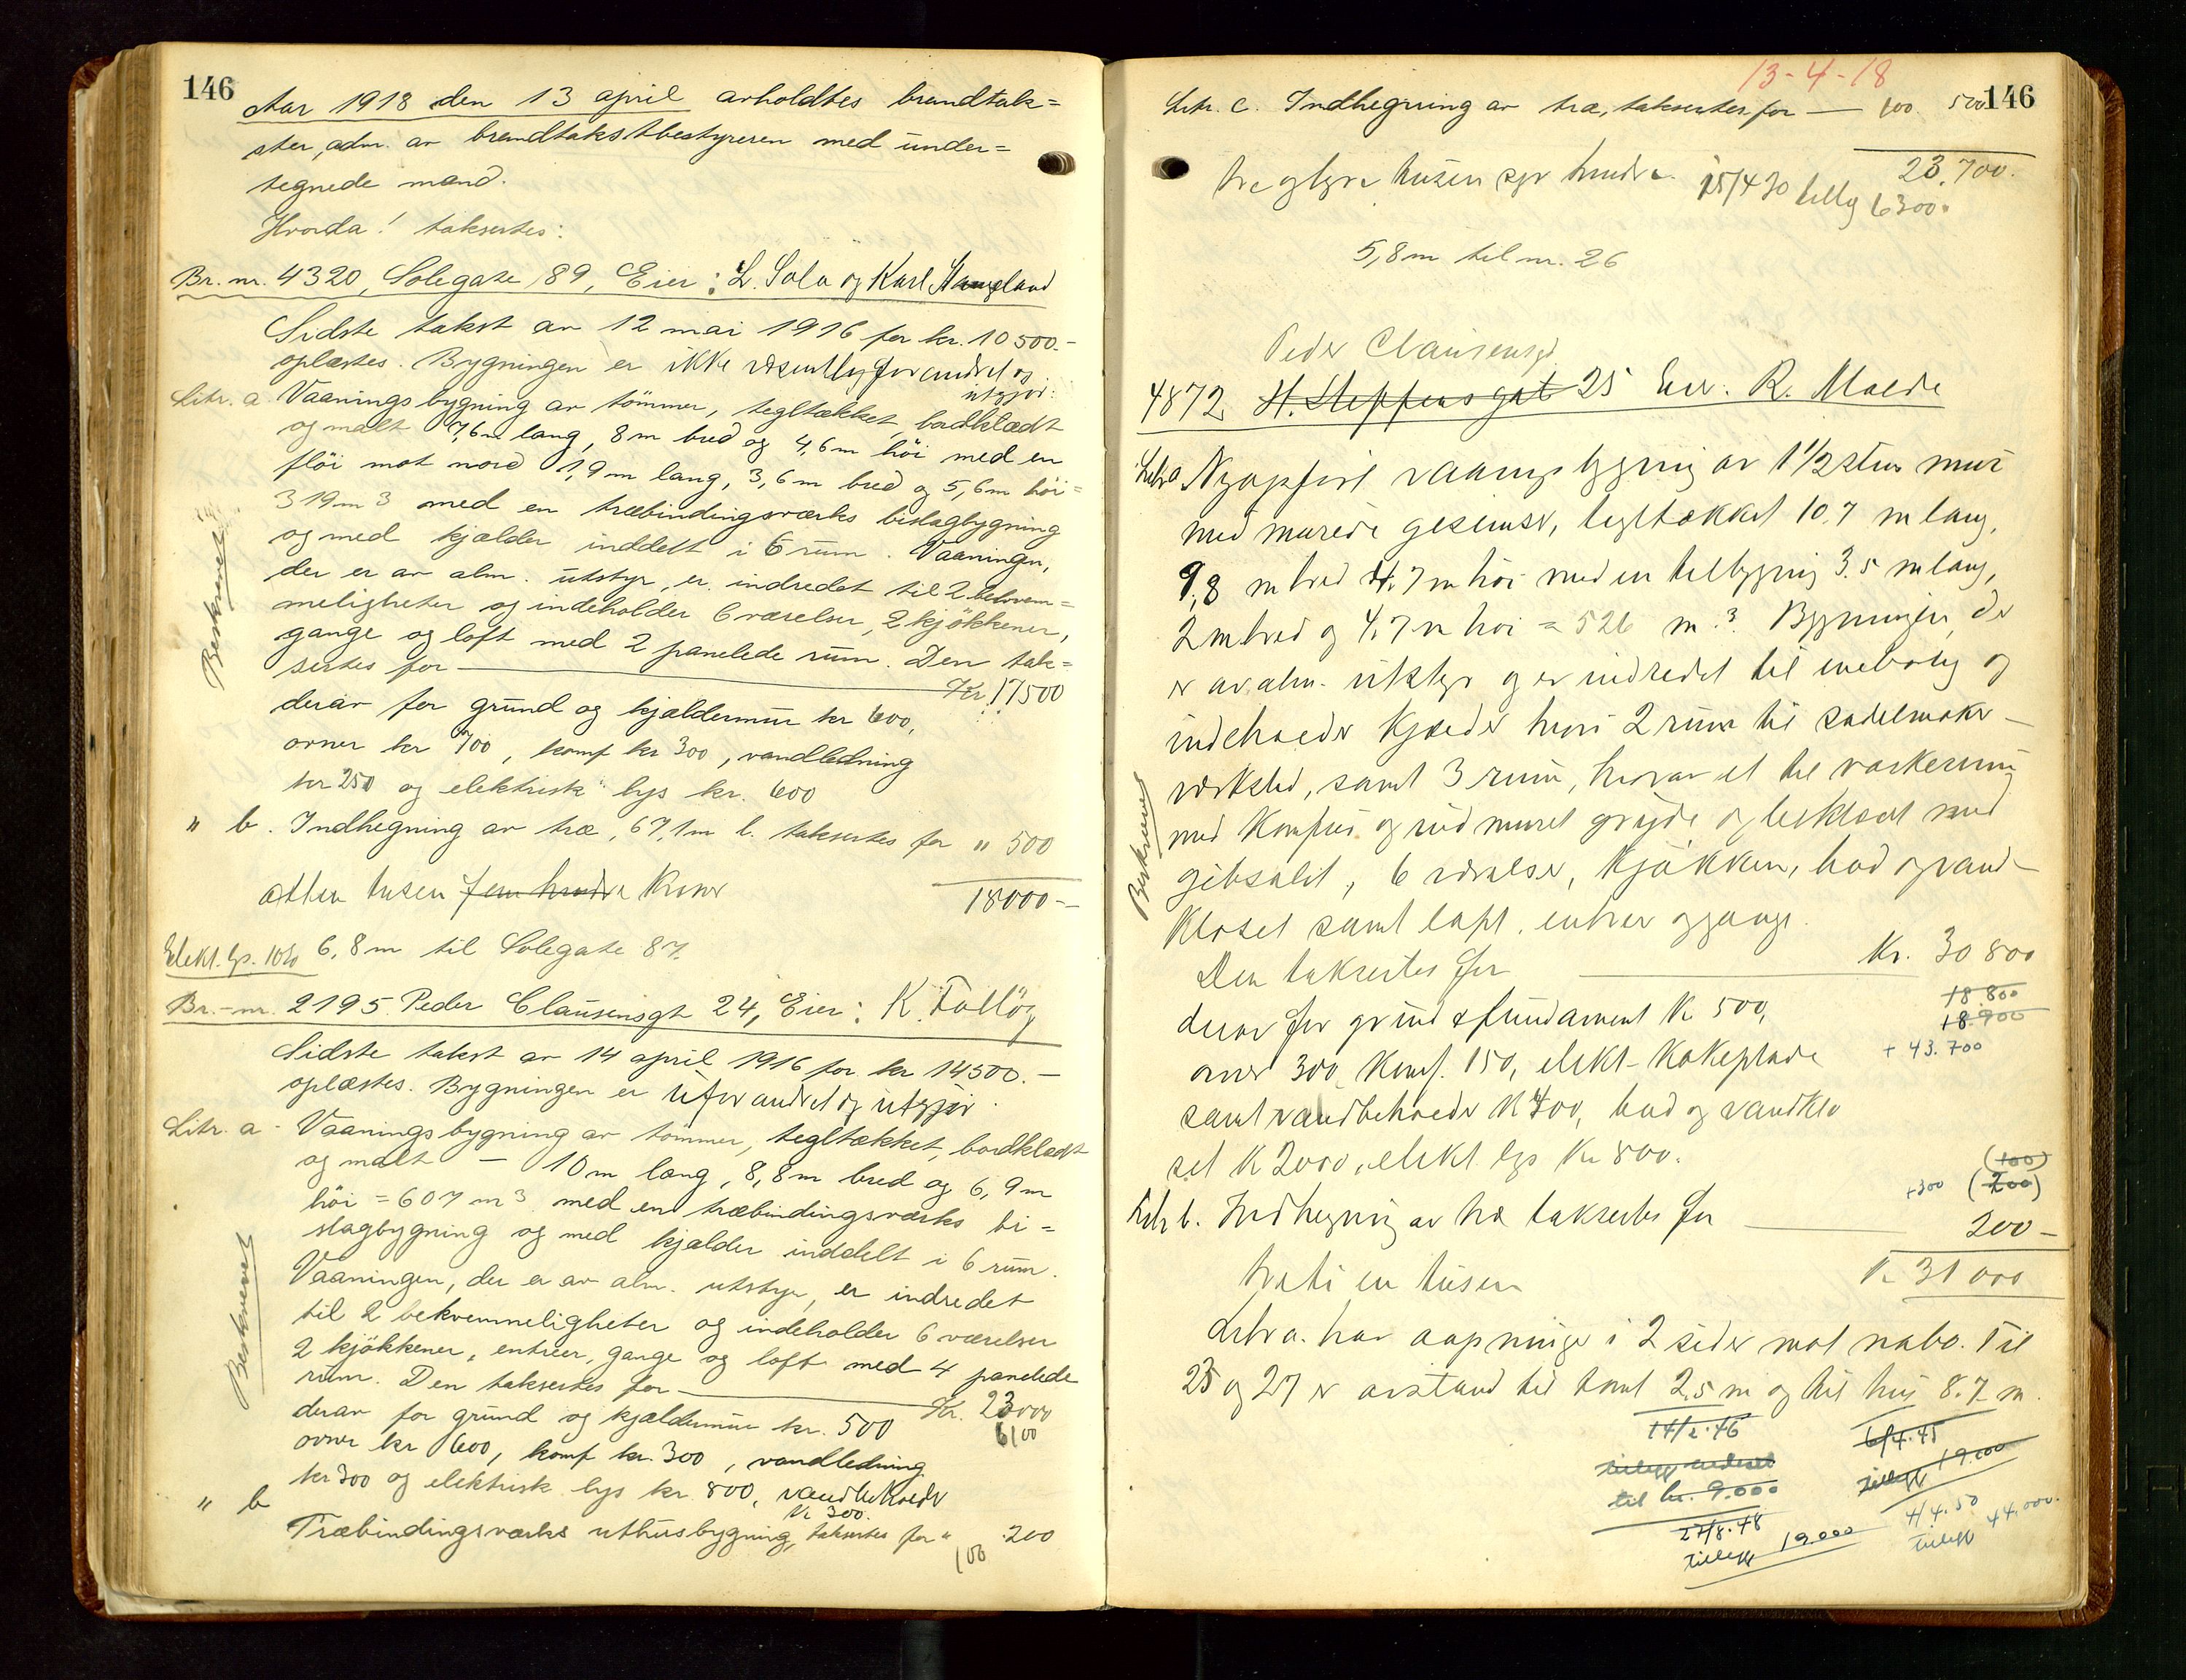 146
Aar 1918 den 13 april avholdtes brandtak=
ster, adm. av brandtakstbestyreren med under=
tegnede mænd.
Hvorda! taksertes:
Br. nr. 4320, Solegate 89, Eier: L. Sola og Karl Stangeland
Sidste takst av 12 mai 1916 for kr. 10500.-
oplæstes. Bygningen er ikke væsentlig forandret og
utgjør:
Litr. a Vaaningsbygning av tömmer, tegltækket, bordklædt
og malt 7,6m lang, 8m bred og 4,6m höi med en
flöi mot nord 1,9m lang, 3,6m bred og 5,6m höi=
319m3 med en træbindingsværks bislagbygning
og med kjælder inddelt i 6 rum. Vaaningen,
der er av alm. utstyr, er indredet til 2 bekvem=
meligheter og indeholder 6 værelser, 2 kjökkener,
gange og loft med 2 panelede rum. Den tak=
sertes for Kr. 17500
derav for grund og kjældermur kr 600,
ovner kr 700, komf kr 300, vandledning
kr 250 og elektrisk lys kr. 600
" b. Indhegning av træ, 67,1m l. taksertes for " 500
atten tusen fem hundre kroner 18000--
Elekt. lys. 10% 6,8m til Solegate 87.
Beskrevet
Br.-nr. 2195 Peder Clausensgt 24, Eier: K. Tollög
Sidste takst av 14 april 1916 for kr 14500.-
oplæstes. Bygningen er uforandret og utgjör.
Litr. a - Vaaningsbygning av tömmer, tegltækket, bordklædt
og malt - 10m lang, 8,8m bred og 6,9m
höi = 607m3 med en træbindingsværks bi=
slagbygning og med kjælder inddelt i 6 rum.
Vaaningen, der er av alm. utstyr, er indredet
til 2 bekvemmeligheter og indeholder 6 værelser
2 kjökkener, entreer, gange og loft med 4 panelede
rum. Den taksertes for Kr. 23000
6100
derav for grund og kjældermur kr. 500
ovner kr 600, komf kr. 300, vandledning
kr 300 og elektrisk lys kr 800, vandbeholder
Kr 300.
" b Træbindingsværks uthusbygning, taksertes for " 200
100
Beskrevet
13-4-18
146
Litr. c. Indhegning av træ, taksertes for — 100. 500
23.700.
tre og tyve tusen syv hundre. 15/4 30 tillæg 6300.
5,8m til nr. 26
Peder Clausensgt
4872 H. Steffensgat 25 Eier. R. Molde
Litr a Nyopfört vaaningsbygning av 1 1/2 etn mur
med murede gesimser, tegltækket 10.7 m lang,
9,8 m bred 4.7m höi med en tilbygning 3.5 m lang,
2 m bred og 4.7 m höi = 526 m.3 Bygningen, der
er av alm. utstyr og er indredet til enebolig og
indeholder kjælder hvori 2 rum til sadelmaker-
værksted, samt 3 rum, hvorav et til vaskerum
med komfur og indmuret gryde og beklædt med
gibsalit, 6 værelser, kjökken, bad og vand-
kloset samt loft, entrer og gange.
Den taksertes for Kr. 30800
18.800
18.900
+ 43.700
derav for grund & fundament Kr 500,
ovner 300, komf. 150, elekt- kokeplade
samt vandbeholder Kr 400, bad og vandklo
set Kr 2000, elekt. lys Kr 800.
(100)
+300 (200)
Litr b. Indhegning av træ taksertes for 200-
treti en tusen Kr 31000
Litr a. har aapninger i 2 sider mot nabo. Til
23 og 27 er avstand til tomt 2.5 m og til hus 8.7 m.
Beskrevet
14/2.46
tillegg endret
til kr. 9.000
27/8.48
tillegg 19000
6/4.45
tillegg 19.000
4/4.50
tillegg 44.000.